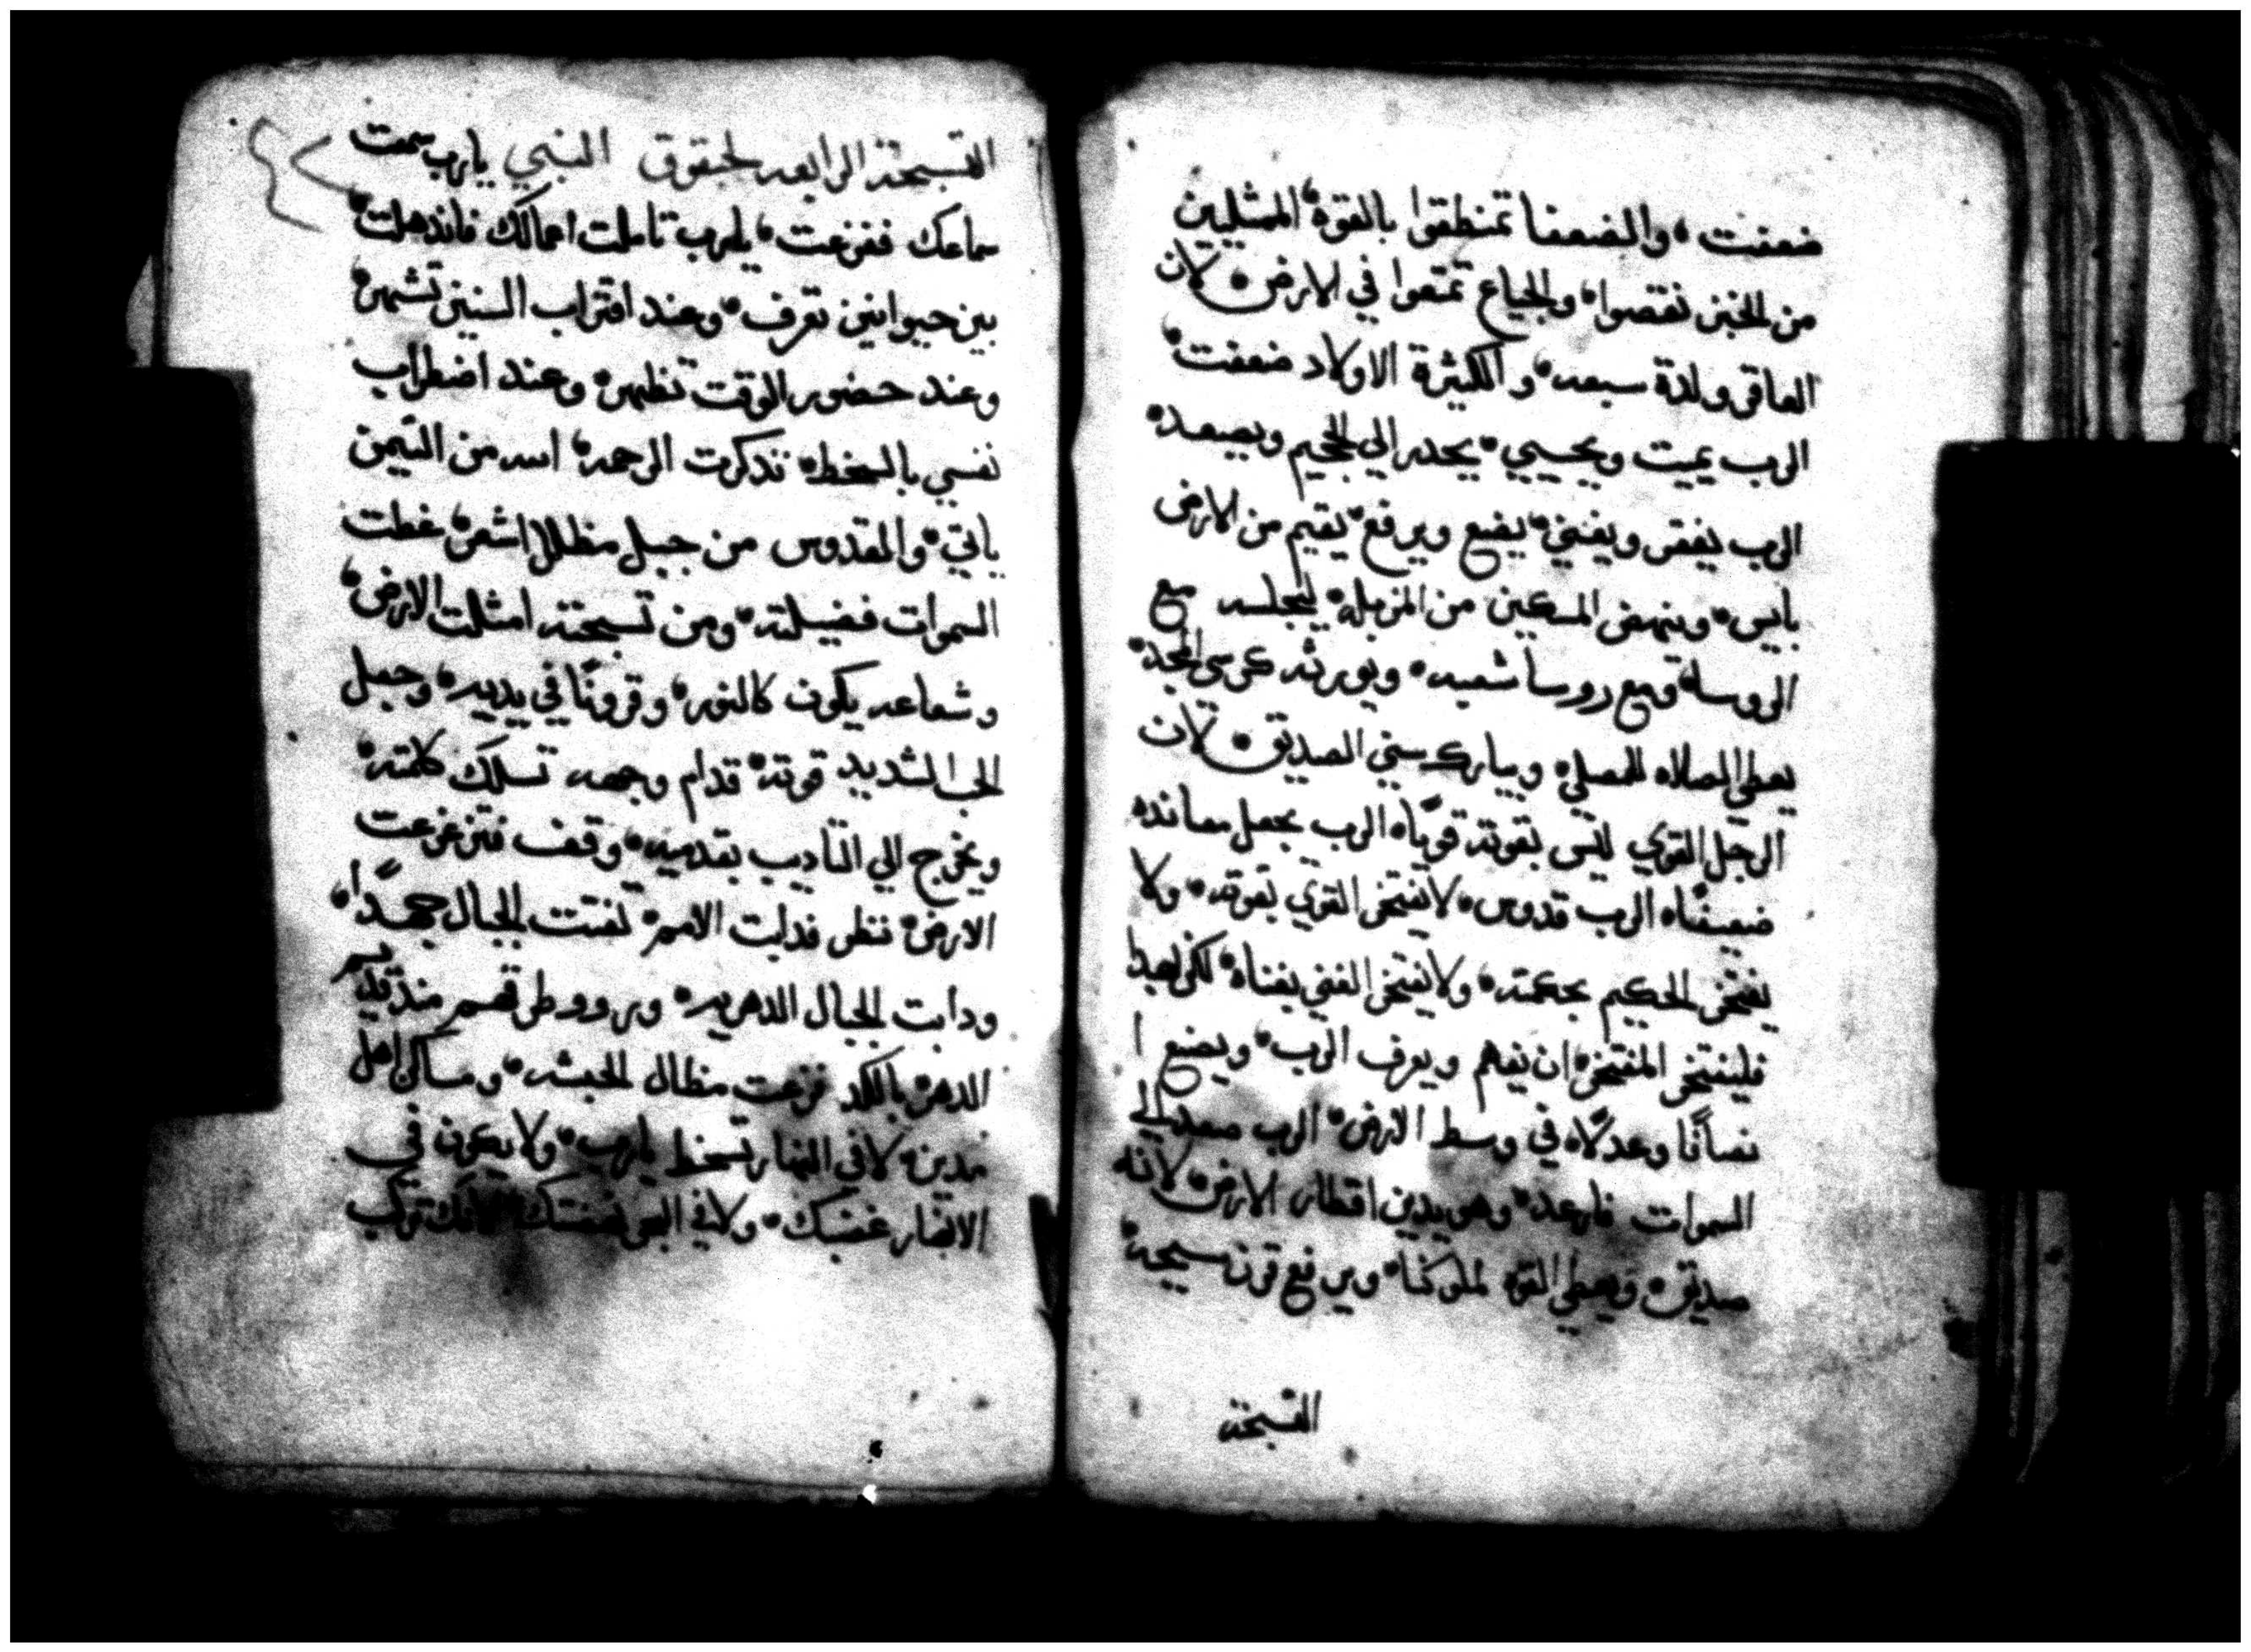 ضعفت، والضعفا تمنطقوا بالقوه، الممتليين
من الخبز نقصوا، والجياع تمتعوا في الارض. لان
العاقر ولدة سبعه، والكثيرة الاولاد ضعفت،
الرب يميت ويحيي. يحدر الي الجحيم ويصعد.
الرب يفقر ويغني، يضع ويرفع، يقيم من الارض
بايس، وينهض المسكين من المزبله، ليجلسه مع
الروسا، ومع روسا شعبه. ويورثه كرسي المجد.
يعطي الصلاه للمصلي، ويبارك سني الصديق. لان
الرجل القوي ليس بقوته قويًا، الرب يجعل معانده
ضعيفًا، الرب قدوس، لا يفتخر القوي بقوته، ولا
يفتخر الحكيم بحكمته، ولا يفتخر الغني بغناه، لكن بهدا
فليفتخر المفتخر، ان يفهم ويعرف الرب، ويصنع ا
نصافًا وعدلًا، في وسط الارض، الرب صعد الي
السموات فارعد، وهو يدين اقطار الارض، لانه
صديق، ويعطي القوه لملوكنا، ويرفع قرن مسيحه،
التسبحة
التسبحة الرابعه لحبقوق النبي يارب سمعت
سماعك ففزعت، يارب تاملت اعمالك فاندهلت،
بين حيوانين تعرف، وعند اقتراب السنين تشهر،
وعند حضور الوقت تظهر، وعند اضطراب
نفسي بالسخط، تذكرت الرحمه، الله من التيمن
ياتي، والقدوس من جبل مظلل اشعر، غطت
السموات فضيلته، ومن تسبحته امتلت الارض،
وشعاعه يكون كالنور، وقرونًا في يديه، وجعل
الحب الشديد قوته، قدام وجهه تسلك كلمته،
ويخرج الي التاديب بقدميه، وقف فتزعزعت
الارض، نظر فدابت الامم، تفتتت الجبال جهدًا،
ودابت الجبال الدهريه، وبرووطر قهم منذ قديم
الدهر، بالكد فزعت مظال الحبشه، ومساكن اهل
مدين، لا في الانهار تسخط يارب، ولا يكون في
الانهار غضبك، ولا في البحر نهضتك، لانك تركب